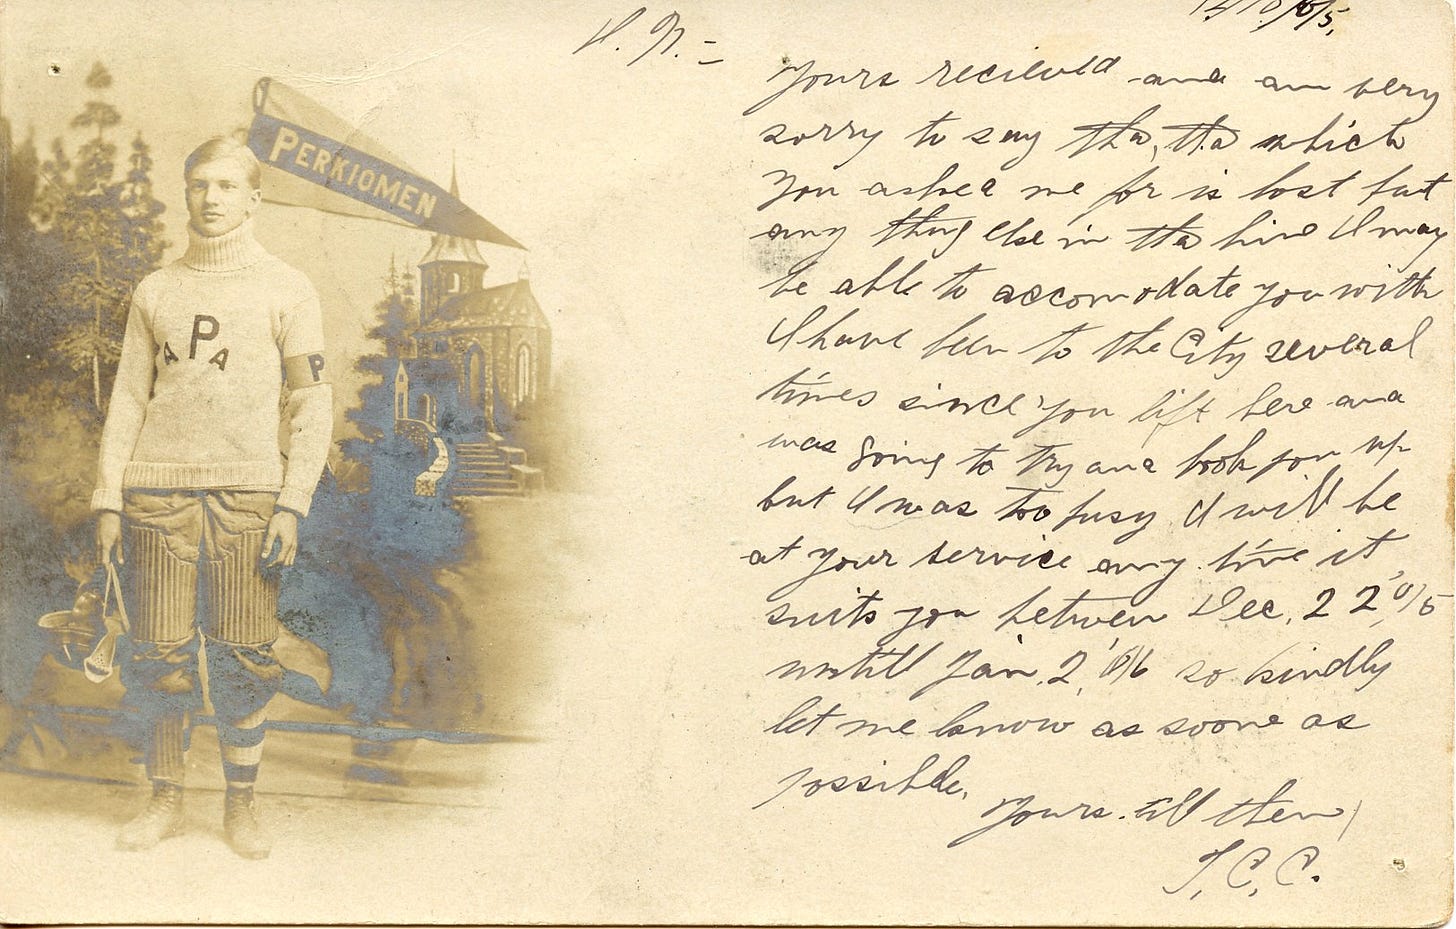 PERKIOMEN
P
A P A
P
H. N. =
Yours recieved and am very
sorry to say tha, tha which
you asked me for is lost but
any thing else in tha line I may
be able to accomodate you with
I have been to the City several
times since you lift here and
was going to try and look you up
but I was too busy I will be
at your service any time it
suits you between Dec. 22, '05
untill Jan. 2, '06 so kindly
let me know as soone as
possible.
Yours till then,
T. C. C.